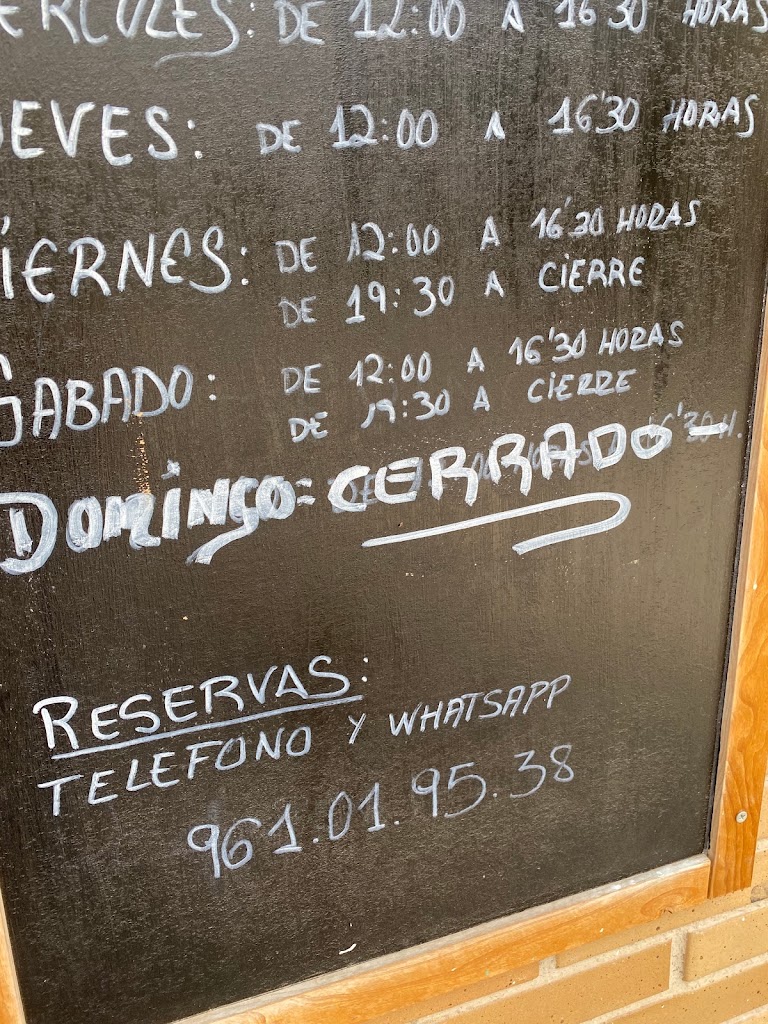 ERCOLES: DE 12:00 A 16'30 HORAS
UEVES: DE 12:00 A 16'30 HORAS
VIERNES: DE 12:00 A 16'30 HORAS
DE 19:30 A CIERRE
SABADO: DE 12:00 A 16'30 HORAS
DE 19:30 A CIERRE
DOMINGO: CERRADO
RESERVAS:
TELEFONO Y WHATSAPP
961.01.95.38